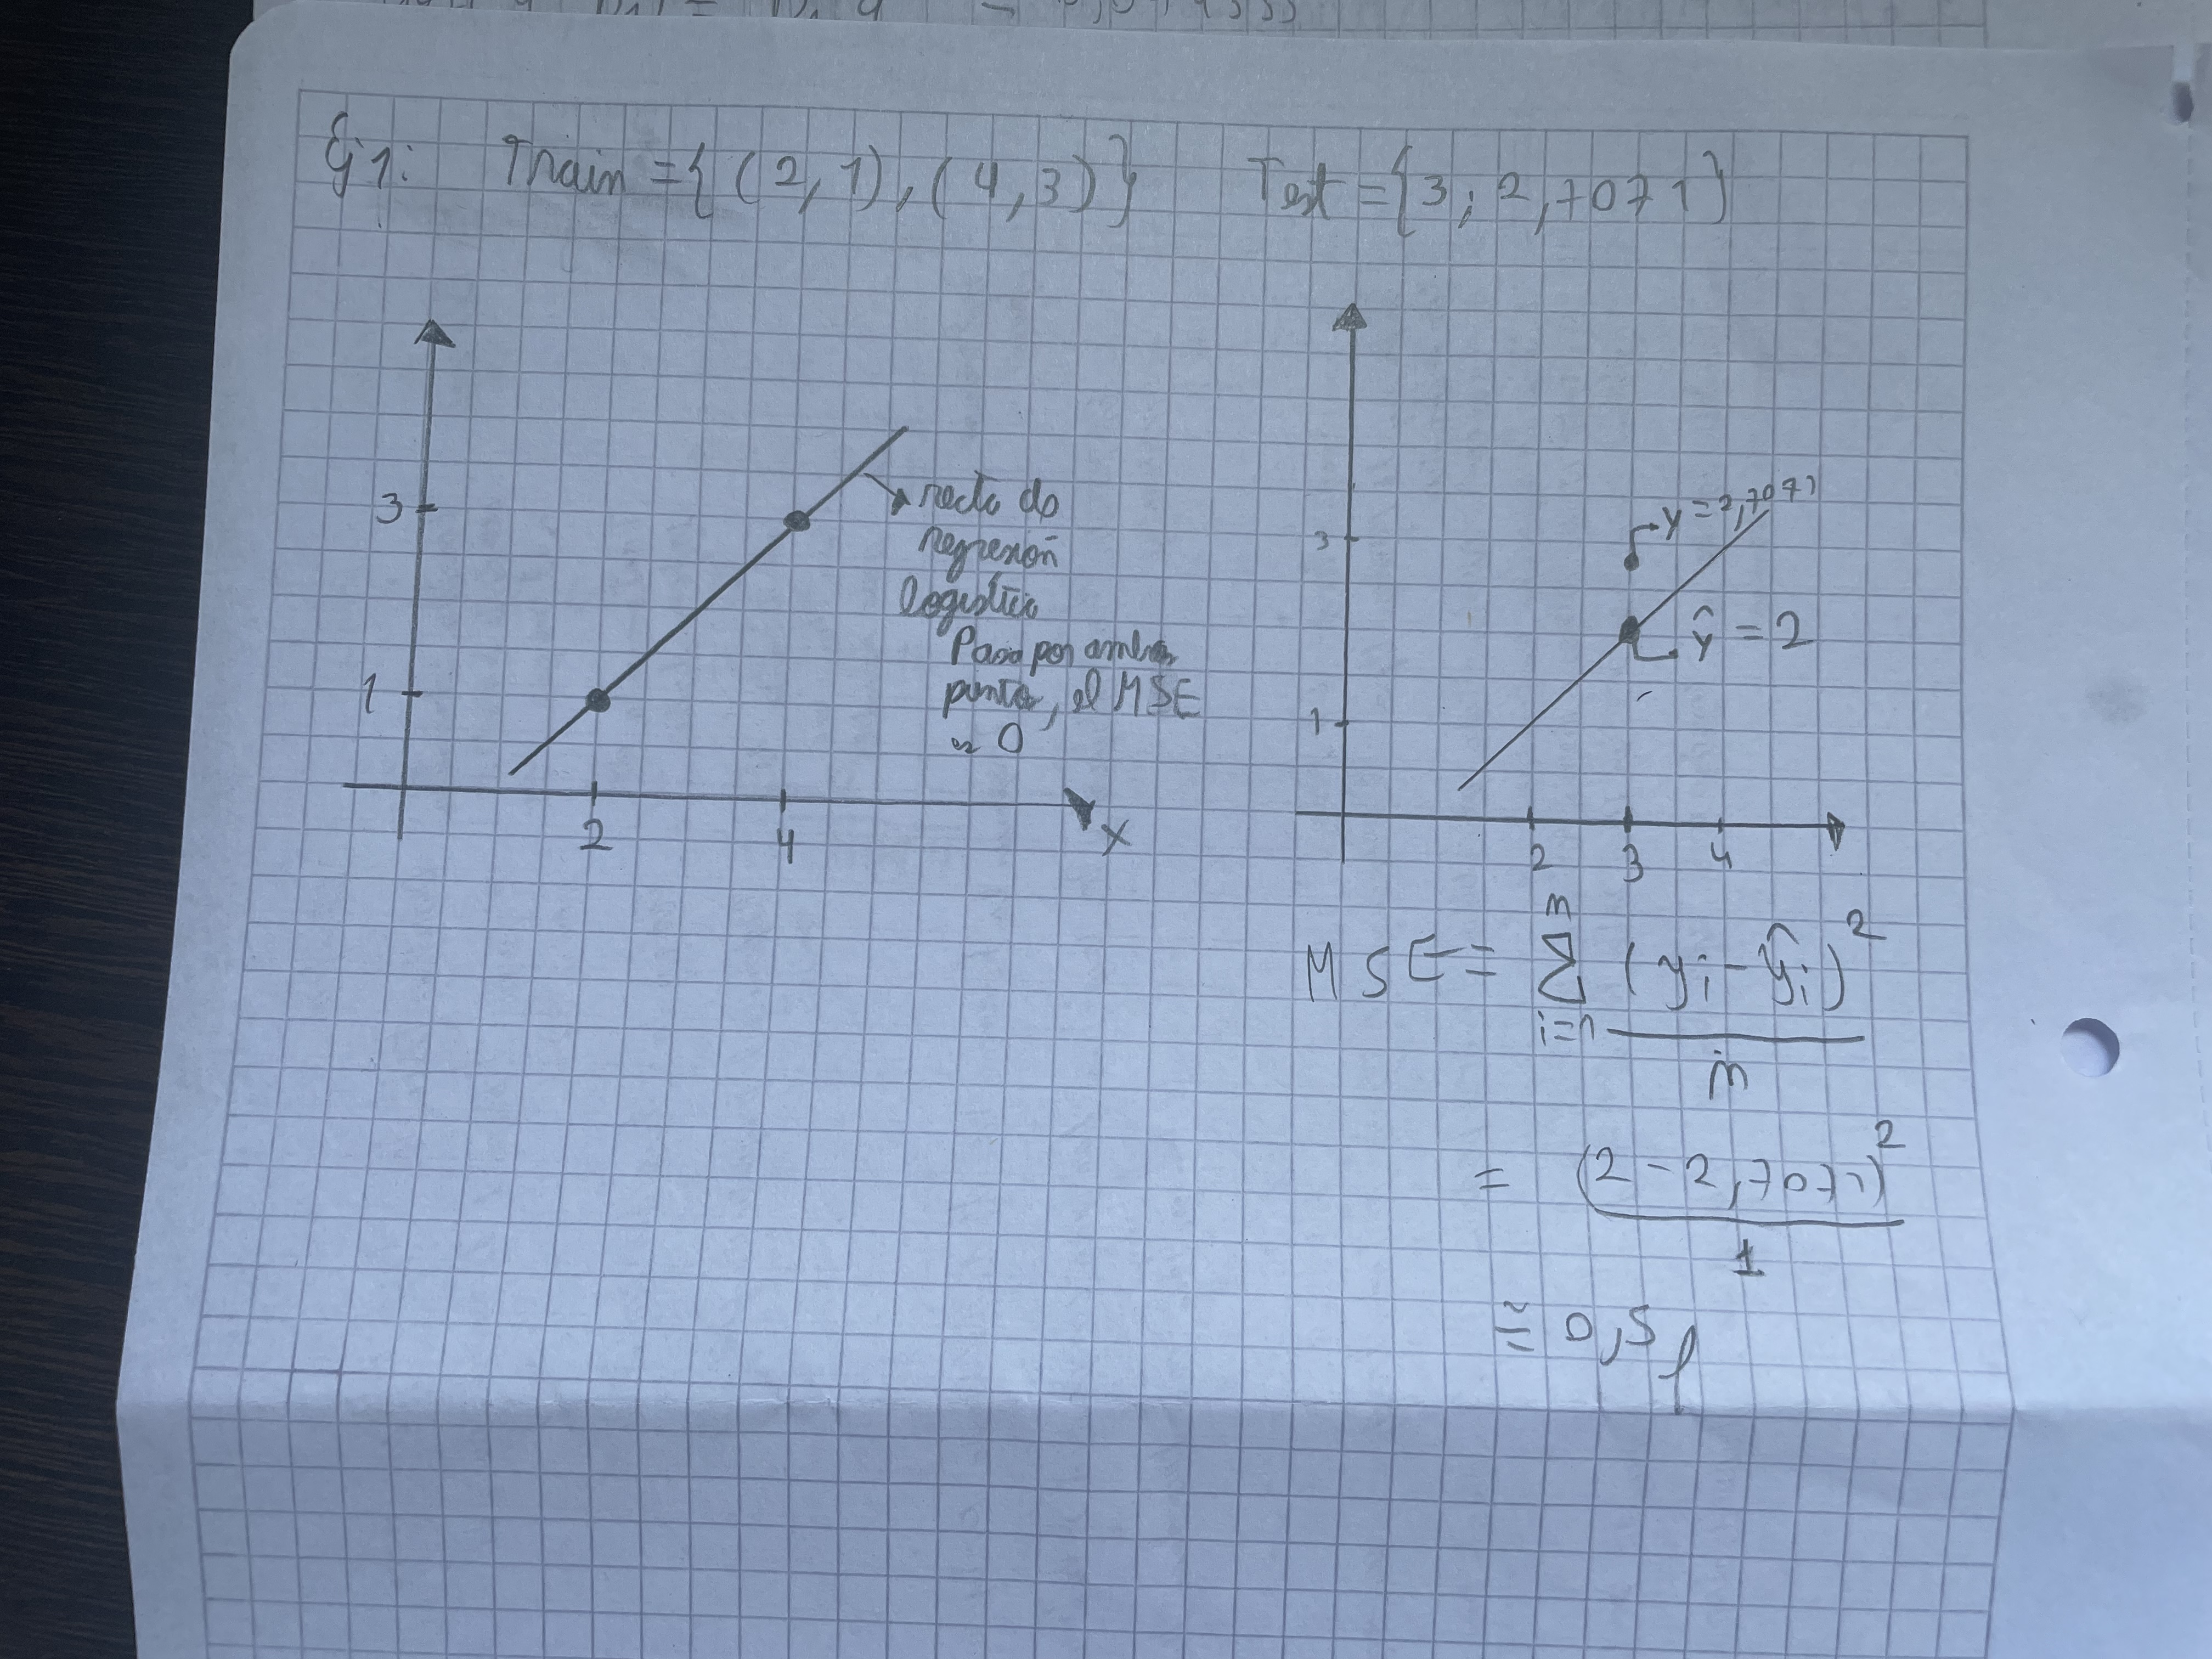 Ej 1: Train = { (2, 1), (4, 3) } Test = {3; 2,7071}
3
1
2 4 x
recta de
regresión
logística
Pasa por ambos
puntos, el MSE
es 0
3
1
2 3 4
y = 2,7071
ŷ = 2
MSE = n Σ i=1 (yi - ŷi)² / n
= (2 - 2,7071)² / 1
≅ 0,5